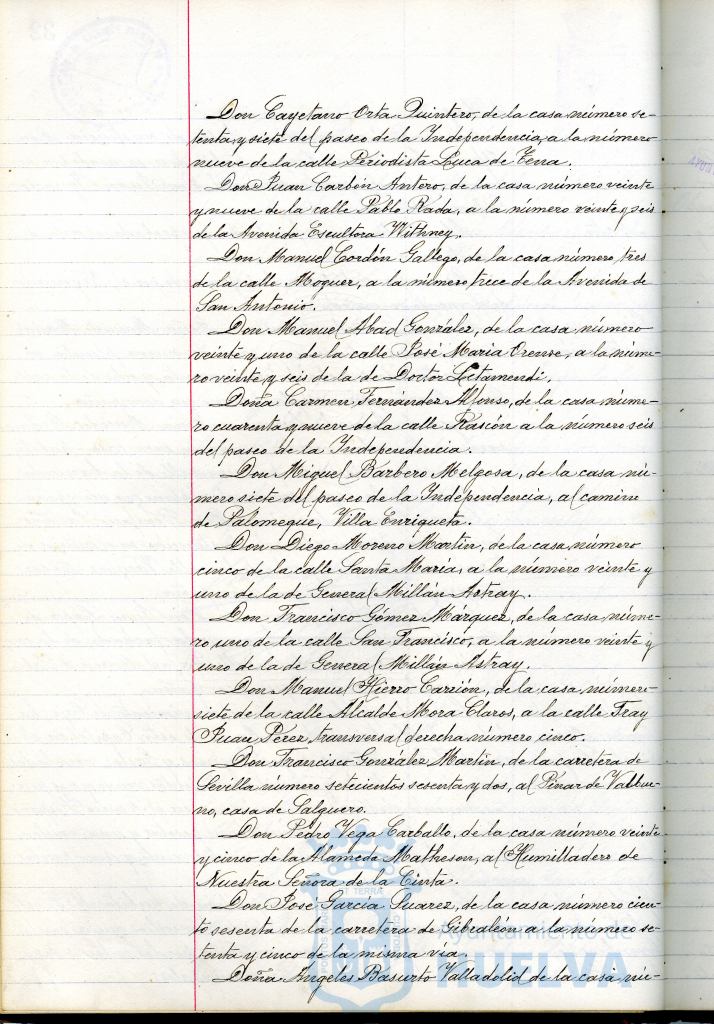 Don Cayetano Orta Quintero, de la casa número se-
tenta y siete del paseo de la Independencia, a la número
nueve de la calle Periodista Luca de Tena.
Don Juan Carbón Antero, de la casa número veinte
y nueve de la calle Pablo Rada, a la número veinte y seis
de la Avenida Escultora Withney.
Don Manuel Cordón Gallego, de la casa número tres
de la calle Moguer, a la número trece de la Avenida de
San Antonio.
Don Manuel Abad González, de la casa número
veinte y uno de la calle José Maria Orense, a la núme-
ro veinte y seis de la de Doctor Letamendi.
Doña Carmen Fernández Alfonso, de la casa núme-
ro cuarenta y nueve de la calle Rascón a la número seis
del paseo de la Independencia.
Don Miguel Barbero Melgosa, de la casa nú-
mero siete del paseo de la Independencia, al camino
de Palomeque, Villa Enriqueta.
Don Diego Moreno Martin, de la casa número
cinco de la calle Santa Maria, a la número veinte y
uno de la de General Millán Astray.
Don Francisco Gómez Márquez, de la casa núme-
ro uno de la calle San Francisco, a la número veinte y
uno de la de General Millán Astray.
Don Manuel Hierro Carrión, de la casa número
siete de la calle Alcalde Mora Claros, a la calle Fray
Juan Pérez transversal derecha número cinco.
Don Francisco González Martin, de la carretera de
Sevilla número setecientos sesenta y dos, al Pinar de Valbue-
no, casa de Salguero.
Don Pedro Vega Carballo, de la casa número veinte
y cinco de la Alameda Matheson, al Humilladero de
Nuestra Señora de la Cinta.
Don José García Suarez, de la casa número cien-
to sesenta de la carretera de Gibraleón a la número se-
tenta y cinco de la misma vía.
Doña Angeles Basurto Valladolid de la casa nú-
Ayuntamiento de
HUELVA